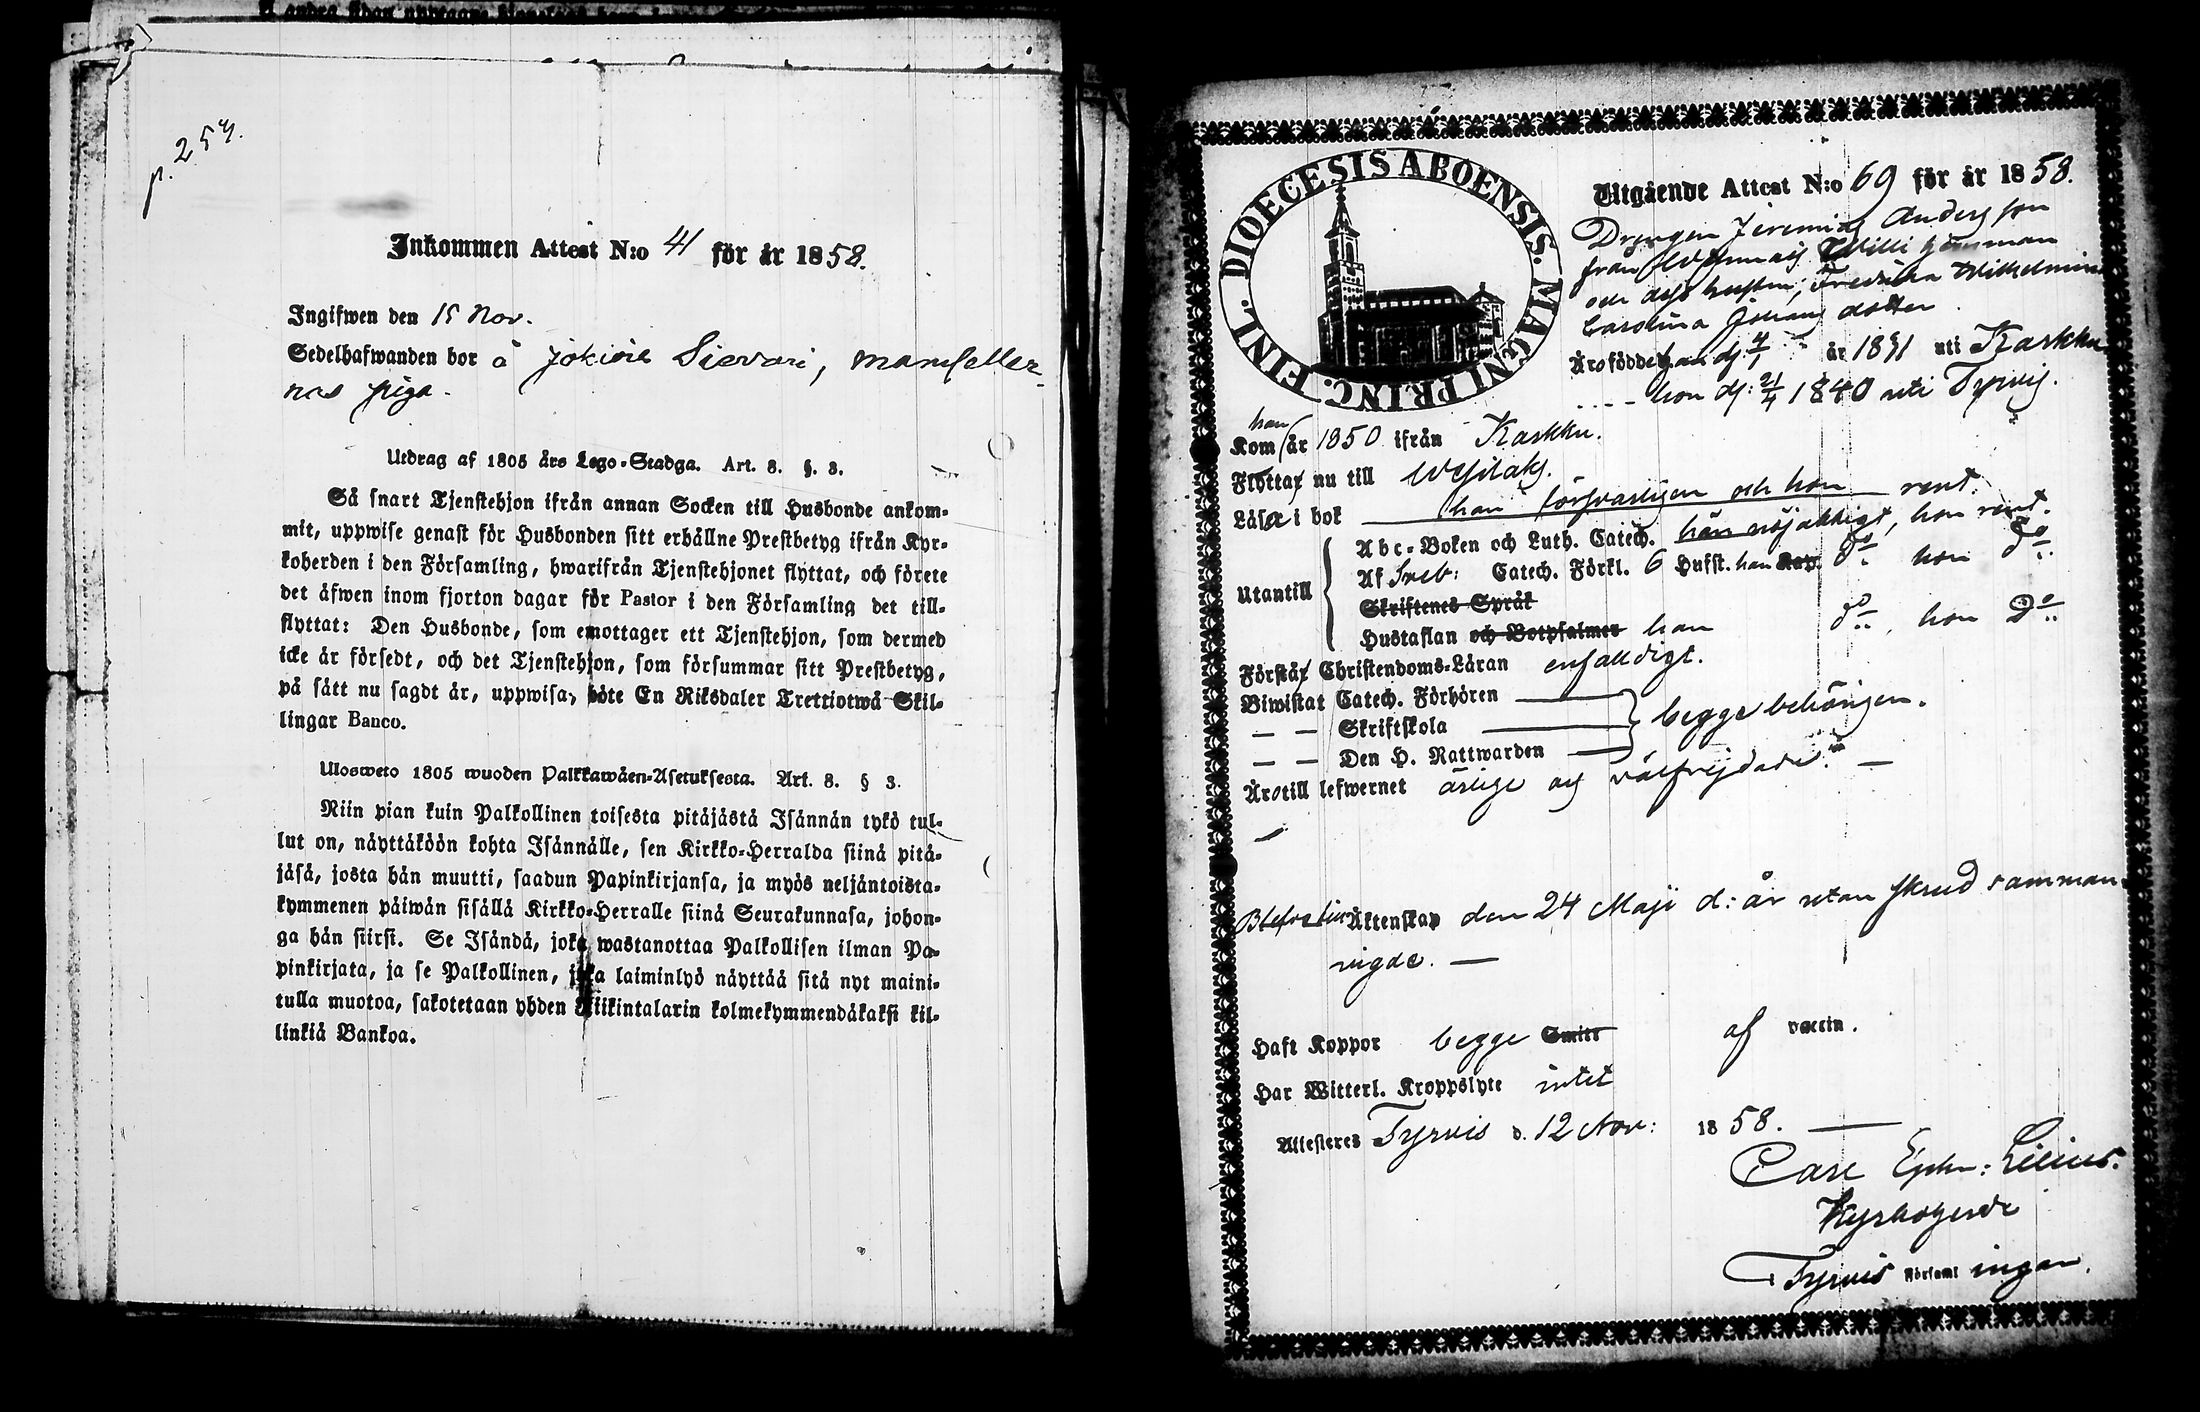 p. 254.
Inkommen Attest N:o 41 för år 1858.
Ingifwen den 15 Nov.
Sedelhafwanden bor å Jokioie Sievari, mamseller-
nas piga.
Utdrag af 1805 års Lego-Stadga. Art. 8. §. 3.
Så snart Tjenstehjon ifrån annan Socken till Husbonde ankom-
mit, uppwise genast för Husbonden sitt erhållne Prestbetyg ifrån Kyr-
koherden i den Församling, hwarifrån Tjenstehjonet flyttat, och förete
det äfwen inom fjorton dagar för Pastor i den Församling det till-
flyttat: Den Husbonde, som emottager ett Tjenstehjon, som dermed
icke är försedt, och det Tjenstehjon, som försummar sitt Prestbetyg,
på sätt nu sagdt är, uppwisa, böte En Riksdaler Trettiotwå Skil-
lingar Banco.
Ulosweto 1805 wuoden Palkkawäen-Asetuksesta. Art. 8. § 3.
Niin pian kuin Palkollinen toisesta pitäjästä Isännän tykö tul-
lut on, näyttäköön kohta Isännälle, sen Kirkko-Herralda siinä pitä-
jäsä, josta hän muutti, saadun Papinkirjansa, ja myös neljäntoista-
kymmenen päiwän sisällä Kirkko-Herralle siinä Seurakunnasa, johon-
ga hän siirsi. Se Isändä, joka wastanottaa Palkollisen ilman Pa-
pinkirjata, ja se Palkollinen, joka laiminlyö näyttää sitä nyt maini-
tulla muotoa, sakotetaan yhden Riikintalarin kolmekymmendäkaksi kil-
linkiä Bankoa.
DIOECESIS ABOENSIS. MAGNI PRINC. FINL.
Utgående Attest N:o 69 för år 1858.
Drengen Jeremias Andersson
från Willi hemman
och dess hustru, Fredrika Wilhelmina
Carolina Johans dotter.
Äro födde han d: 4/1 år 1831 uti Karkku
hon d: 21/4 1840 uti Tyrvis.
Kom han år 1850 ifrån Karkku.
Flytta nu till
Läsa i bok han försvarligen och hon rent.
Utantill
Abc-Boken och Luth. Catech. han nöjaktigt, hon rent.
Af Sveb: Catech. Förkl. 6 Hufst. han Kap. do hon do
Skriftenes Språk
Hustaflan och Botpsalmer han do, hon Do
Förstå Christendoms-Läran enfalldigt.
Biwistat Catech. Förhören
— — Skriftskola begge behörigen.
— — Den H. Nattwarden
Äro till lefwernet ärlige och välfrejdade. —
Äktenskap den 24 Maji d: år utan skrud samman-
vigde. —
Haft Koppor begge Smitt af vaccin.
Har Witterl. Kroppslyte intet
Attesteres Tyrvis d. 12 Nov: 1858. —
Carl Ephr: Lilius.
Kyrkoherde
Tyrvis Församl ingar.